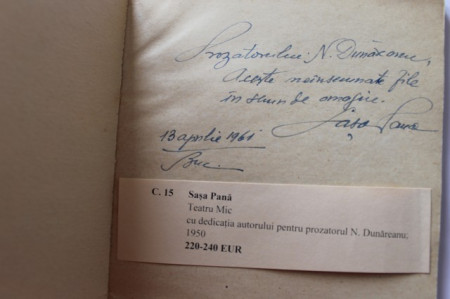 Prozatorului N. Dunăreanu,
Aceste neînsemnate file
în semn de omagiu.
Sașa Pană
13 aprilie 1961
Buc.
C. 15 Sașa Pană
Teatru Mic
cu dedicația autorului pentru prozatorul N. Dunăreanu,
1950
220-240 EUR